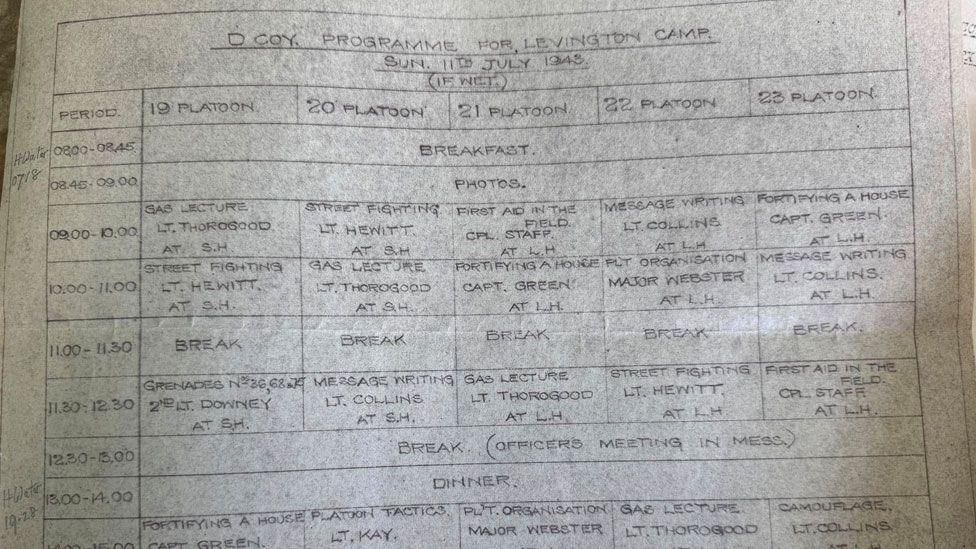 D COY. PROGRAMME FOR LEVINGTON CAMP.
SUN. 11TH JULY 1943.
(IF WET.)
PERIOD. 19 PLATOON 20 PLATOON 21 PLATOON. 22 PLATOON 23 PLATOON.
H Water
0718
08.00-08.45. BREAKFAST.
08.45-09.00 PHOTOS.
09.00-10.00
GAS LECTURE.
LT. THOROGOOD
AT S.H.
STREET FIGHTING
LT. HEWITT.
AT S.H
FIRST AID IN THE
FIELD.
CPL. STAFF.
AT L.H
MESSAGE WRITING
LT. COLLINS
AT L.H
FORTIFYING A HOUSE
CAPT. GREEN.
AT L.H.
10.00-11.00
STREET FIGHTING
LT. HEWITT.
AT S.H.
GAS LECTURE
LT. THOROGOOD
AT S.H.
FORTIFYING A HOUSE
CAPT. GREEN.
AT L.H.
PLT ORGANISATION
MAJOR WEBSTER
AT L.H.
MESSAGE WRITING
LT. COLLINS.
AT L.H.
11.00-11.30 BREAK BREAK BREAK BREAK BREAK.
11.30-12.30
GRENADES Nos 36, 68 &
2ND LT. DOWNEY
AT S.H.
MESSAGE WRITING
LT. COLLINS
AT S.H.
GAS LECTURE
LT THOROGOOD
AT L.H.
STREET FIGHTING
LT. HEWITT.
AT L.H
FIRST AID IN THE
FIELD.
CPL STAFF
AT L.H.
12.30-13.00 BREAK. (OFFICERS MEETING IN MESS.)
13.00-14.00 DINNER.
H Water
19.28
14.00-15.00
FORTIFYING A HOUSE
CAPT GREEN.
PLATOON TACTICS.
LT. KAY.
PL'T. ORGANISATION
MAJOR WEBSTER
GAS LECTURE
LT. THOROGOOD
CAMOUFLAGE.
LT. COLLINS